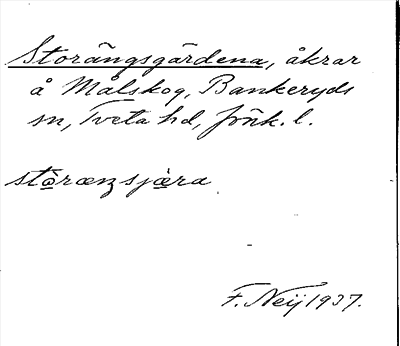 Storängsgärdena, åkrar
å Målskog, Bankeryds
sn, Tveta hd, Jönk. l.
stòrænsjæ̀ra
F. Neij 1937.